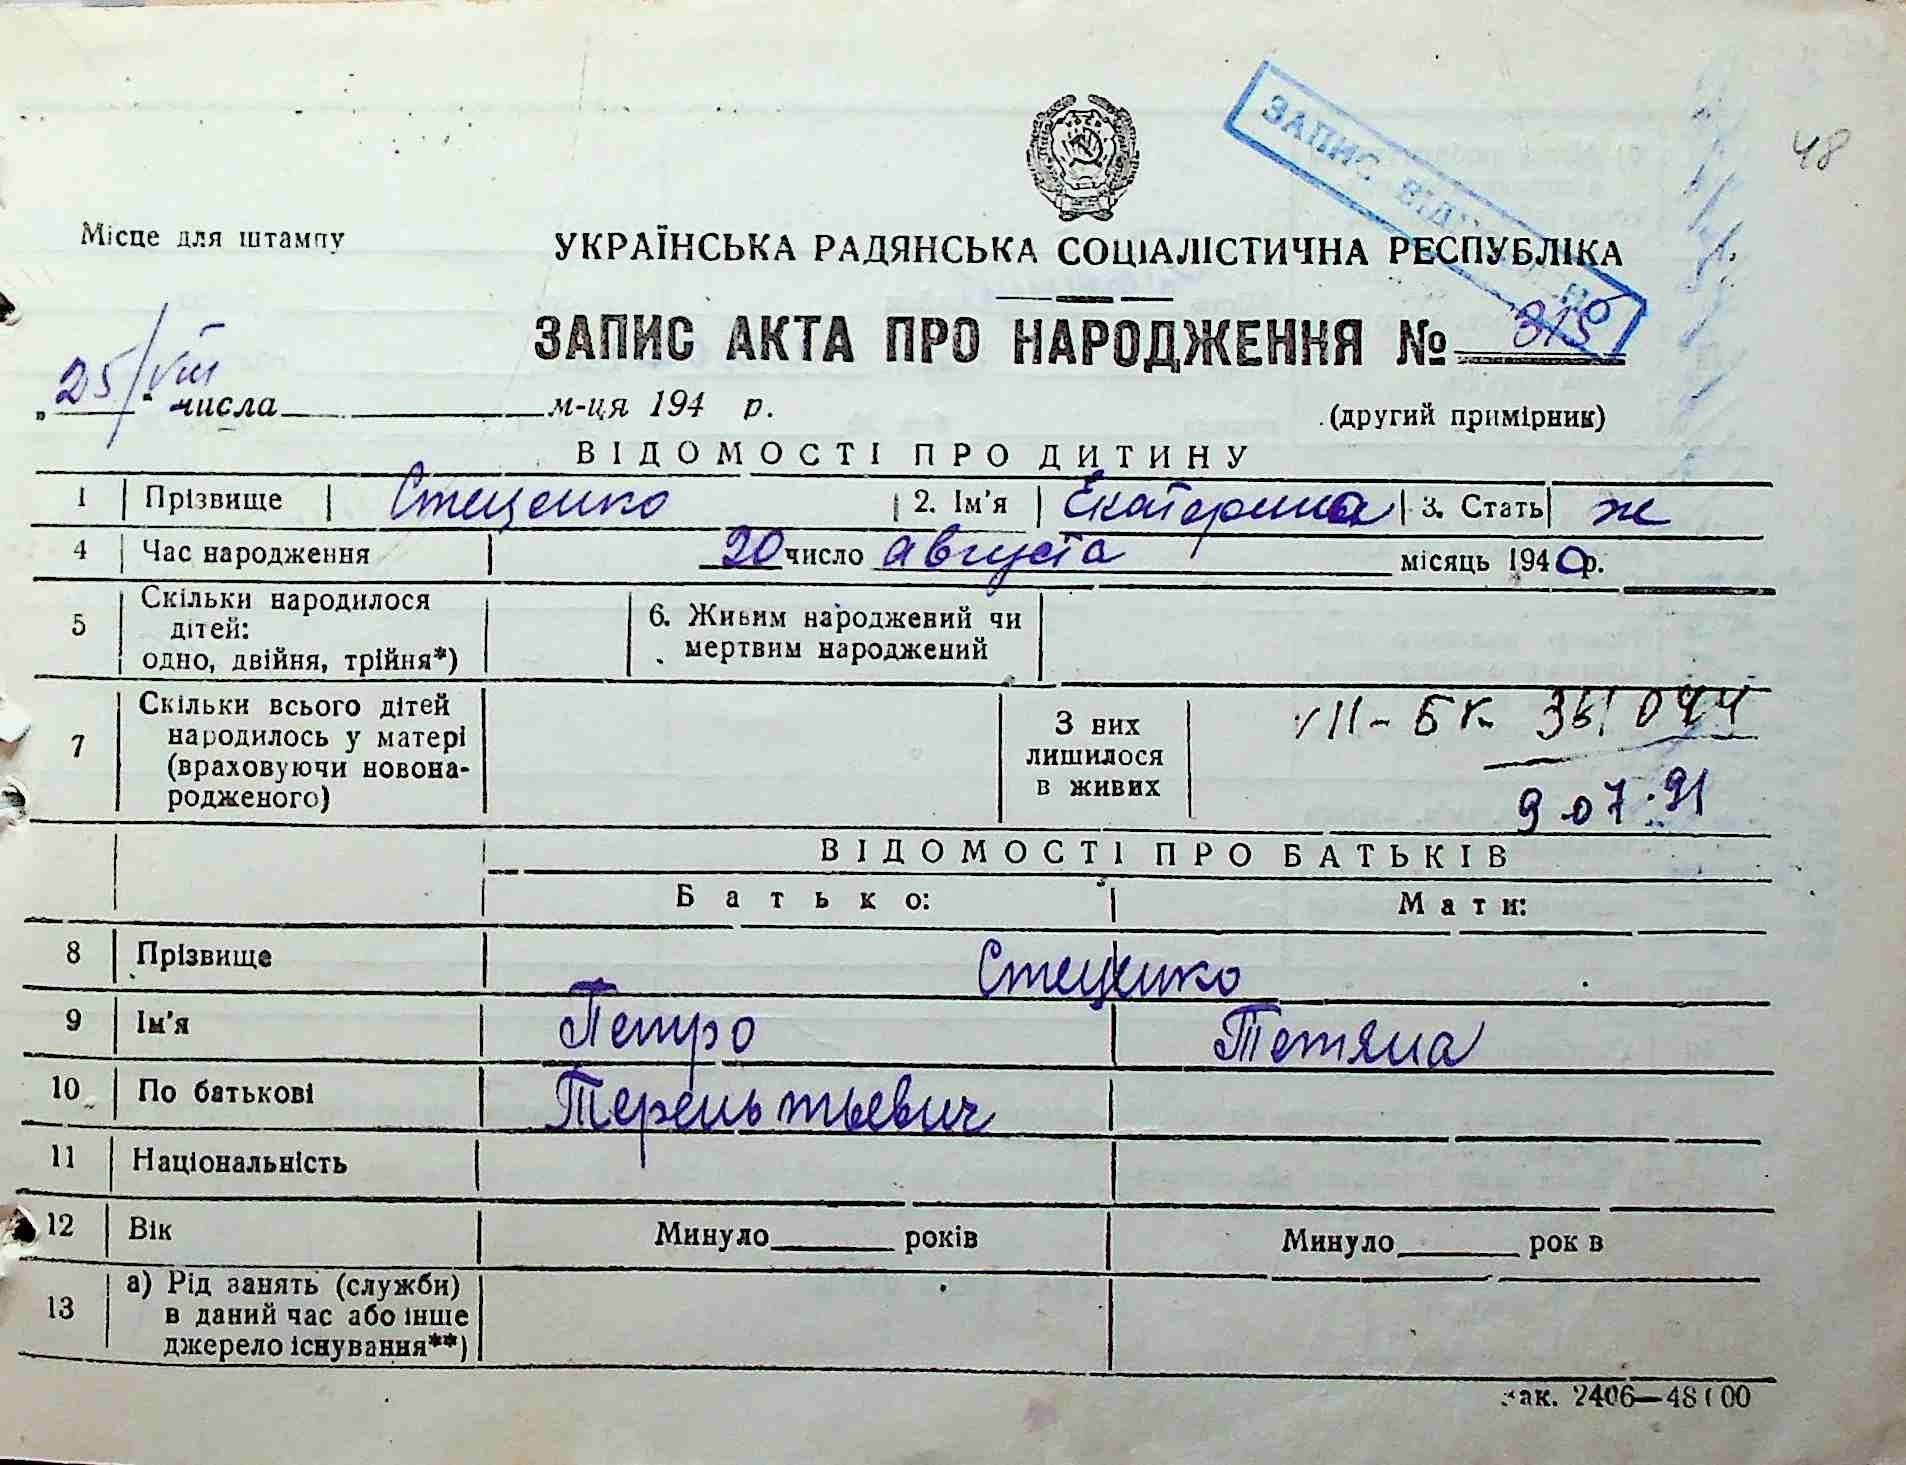 48
ЗАПИС ВІД
Місце для штампу
УКРАЇНСЬКА РАДЯНСЬКА СОЦІАЛІСТИЧНА РЕСПУБЛІКА
ЗАПИС АКТА ПРО НАРОДЖЕННЯ № 315
„25/VIII“ числа м-ця 194 р.
(другий примірник)
ВІДОМОСТІ ПРО ДИТИНУ
1 Прізвище Стеценко 2. Ім'я Екатерина 3. Стать ж
4 Час народження 20 число августа місяць 1940 р.
5 Скільки народилося дітей: одно, двійня, трійня*) 6. Живим народжений чи мертвим народжений
7 Скільки всього дітей народилось у матері (враховуючи новонародженого) З них лишилося в живих VII-БК 361044
9 07.91
ВІДОМОСТІ ПРО БАТЬКІВ
Батько: Мати:
8 Прізвище Стеценко
9 Ім'я Петро Тетяна
10 По батькові Терентьевич
11 Національність
12 Вік Минуло років Минуло рок в
13 а) Рід занять (служби) в даний час або інше джерело існування**)
зак. 2406—48100